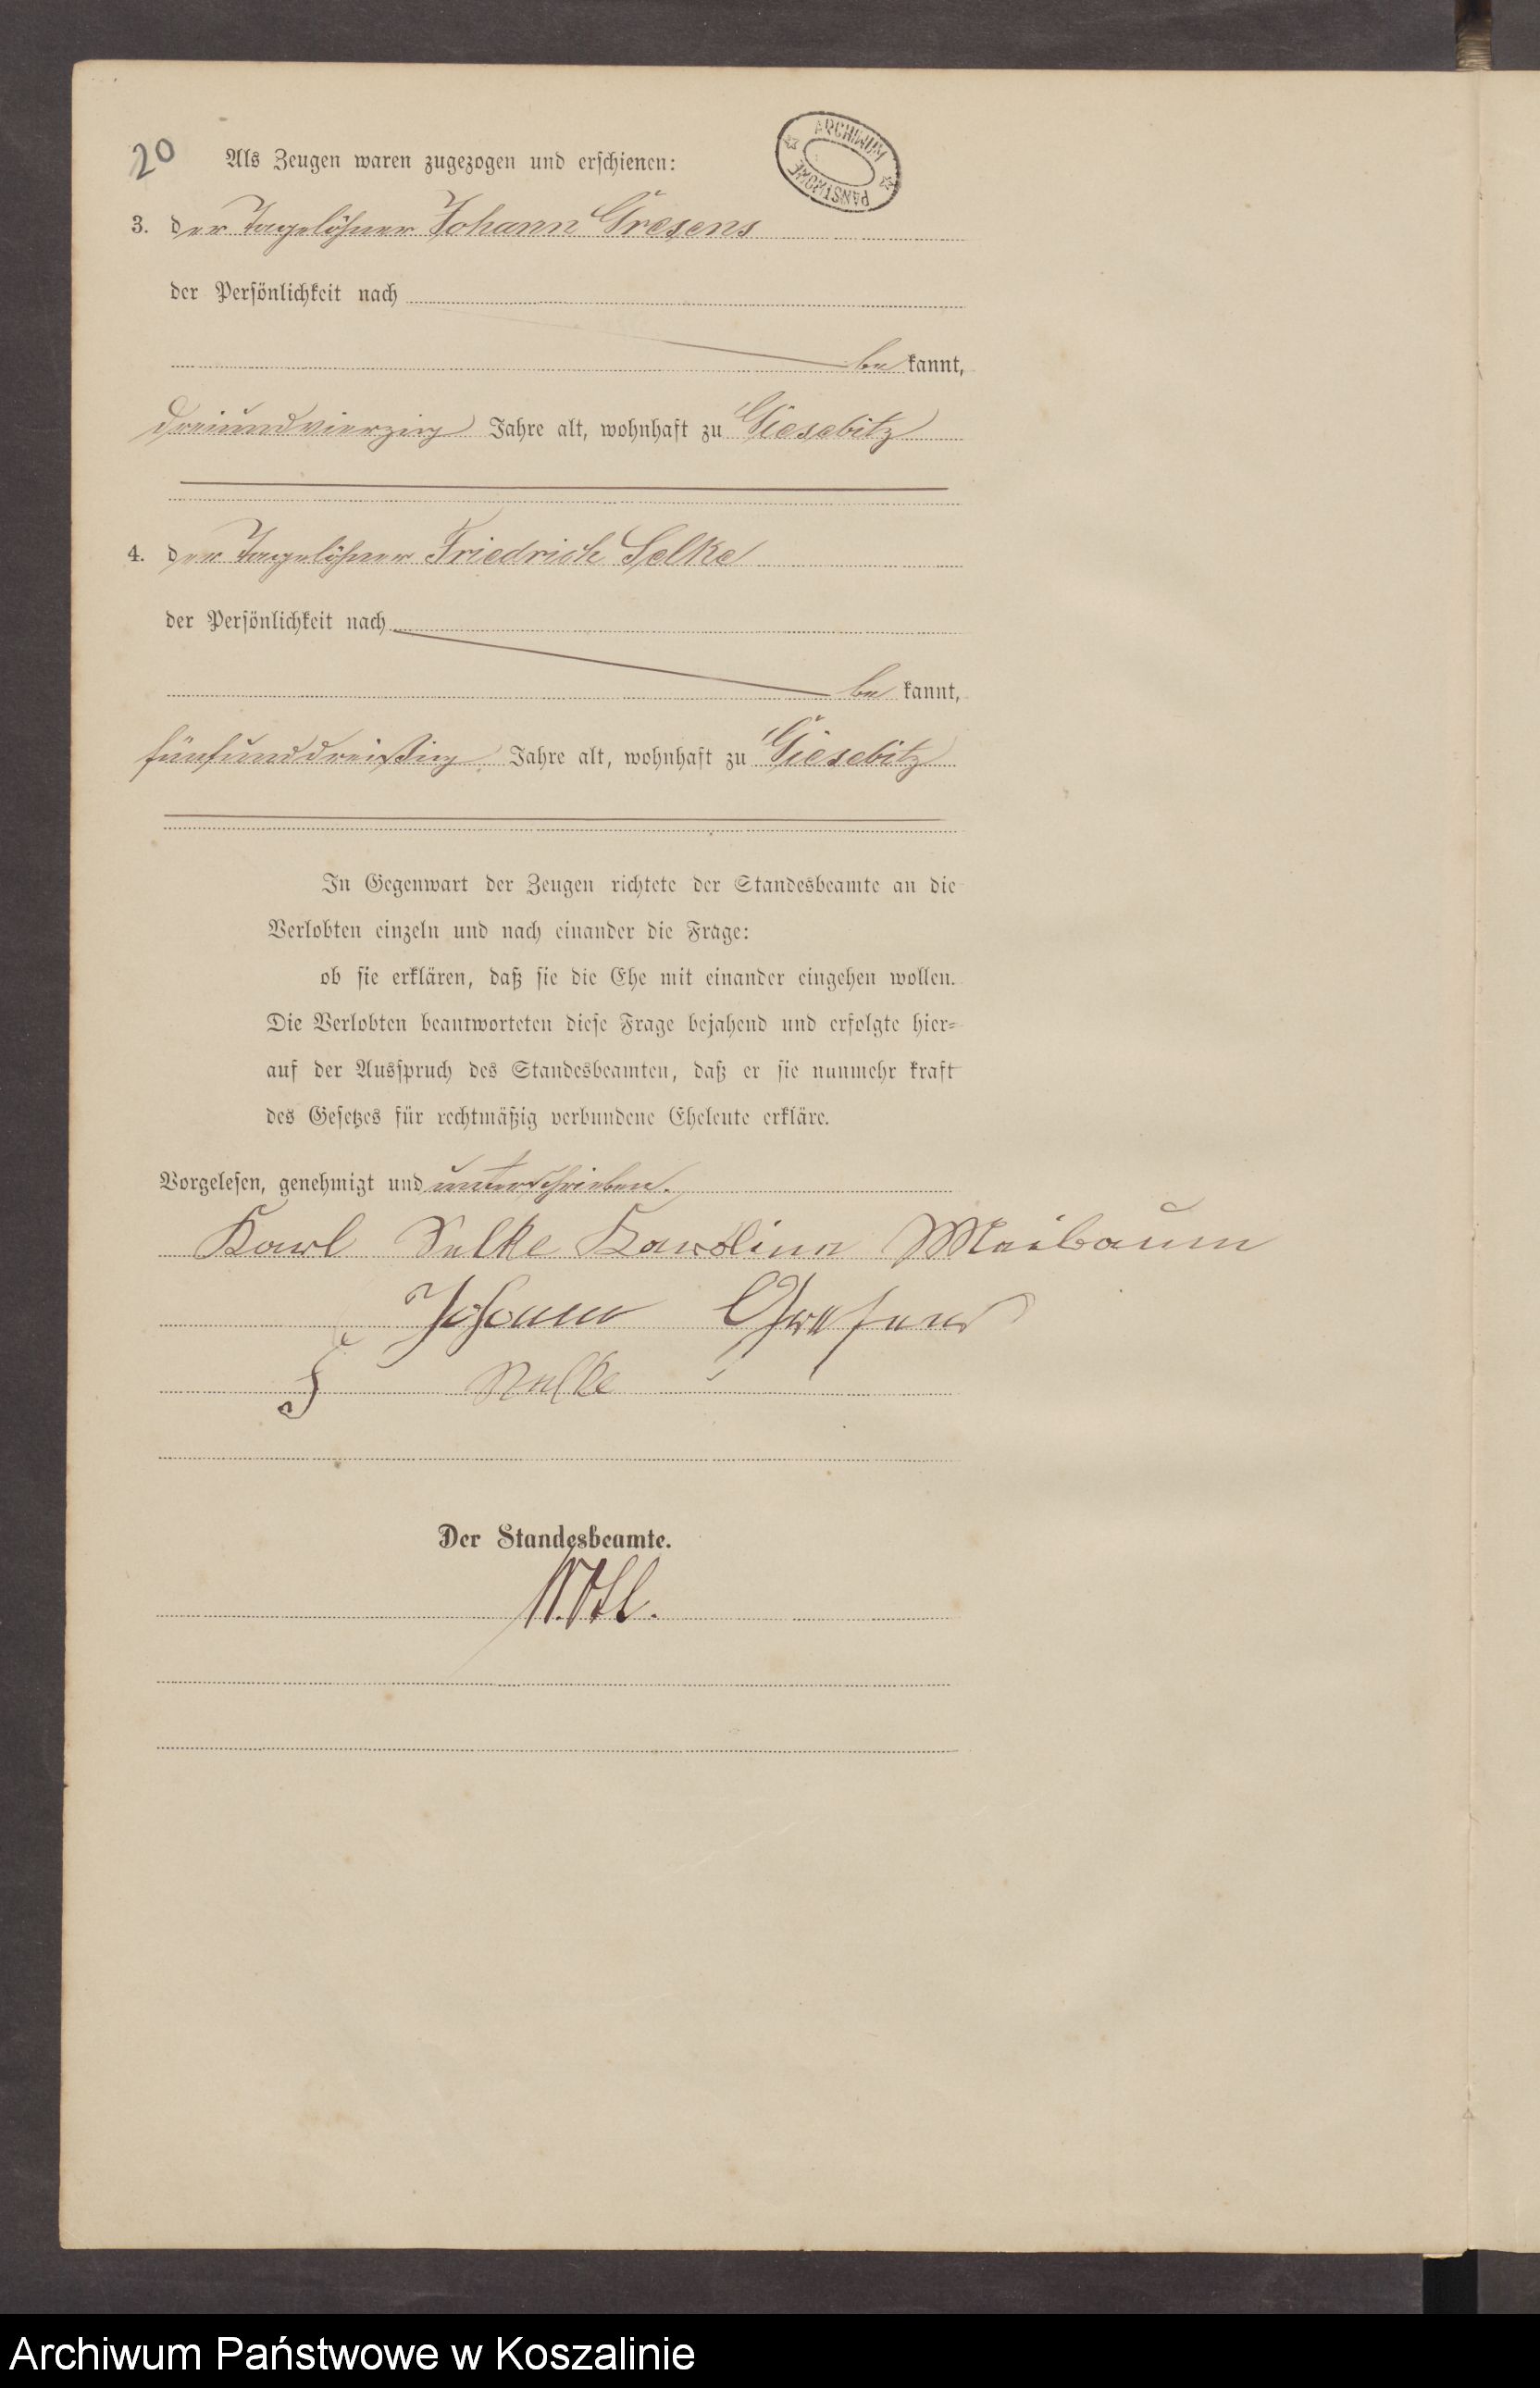 20
Als Zeugen waren zugezogen und erschienen:
ARCHIWUM PAŃSTWOWE
3. der Tagelöhner Johann Gresens
der Persönlichkeit nach
be kannt,
dreiundvierzig Jahre alt, wohnhaft zu Giesebitz
4. der Tagelöhner Friedrich Selke
der Persönlichkeit nach
be kannt,
fünfunddreißig Jahre alt, wohnhaft zu Giesebitz
In Gegenwart der Zeugen richtete der Standesbeamte an die
Verlobten einzeln und nach einander die Frage:
ob sie erklären, daß sie die Ehe mit einander eingehen wollen.
Die Verlobten beantworteten diese Frage bejahend und erfolgte hier-
auf der Ausspruch des Standesbeamten, daß er sie nunmehr kraft
des Gesetzes für rechtmäßig verbundene Eheleute erkläre.
Vorgelesen, genehmigt und unterschrieben.
Karl Selke Karoline Maibaum
Johann Gresens
F Selke
Der Standesbeamte.
Archiwum Państwowe w Koszalinie